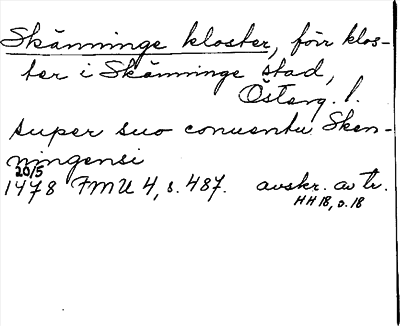 Skänninge kloster, förr klos-
ter i Skänninge stad,
Österg. l.
super suo conuentu Sken-
ningensi
20/5
1478 FMU 4, s. 487. avskr. av tr.
HH 18, s. 18